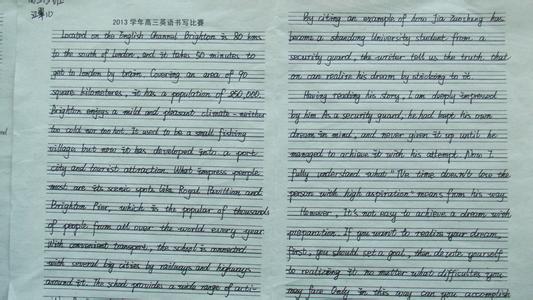 2013学年高三英语书写比赛
Located on the English Channel, Brighton is 80 kms
to the south of London, and it takes 50 minutes to
get to London by train. Covering an area of 90
square kilometeres, it has a population of 250,000.
Brighton enjoys a mild and pleasant climate - neither
too cold nor too hot. It used to be a small fishing
village but now it has developed into a port
city and tourist attraction. What impress people
most are its scenic spots like Royal Pavillion and
Brighton Pier, which is the popular of thousands
of people from all over the world every year
With convenient transport, the school is connected
with several big cities by railways and highways
around it. The school provides a wide range of acti-
By citing an example of how Jia Zuosheng has
become a shandong University student from a
security guard, the writer tell us the truth that
on can realize his dream by sticking to it
Having reading his story, I am deeply impressed
by him As a security guard, he had kept his own
dream in mind, and never given it up until he
managed to achieve it with his attempt. Now I
fully understand what "The time doesn't lose the
person with high aspiration" means from his way.
However, It's not easy to achieve a dream with
preparation. If you want to realize your dream,
first, you should set a goal, then devote yourself
to realizing it no matter what difficulties you
may face. Only in this way can you accomplish